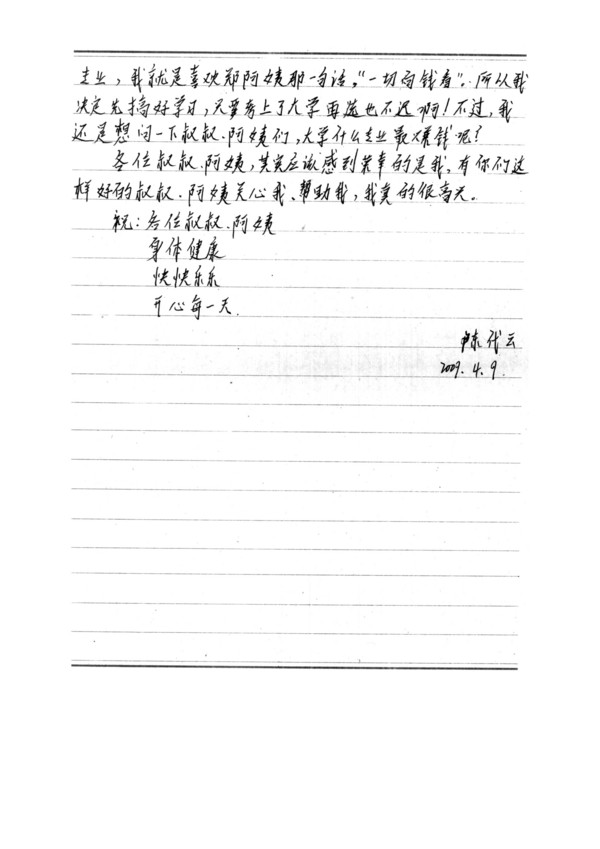 专业，我就是喜欢郑阿姨那一句话，"一切向钱看"。所以我
决定先搞好学习，只要考上了大学再选也不迟啊！不过，我
还是想问一下叔叔、阿姨们，大学什么专业最赚钱呢？
各位叔叔、阿姨，其实应该感到荣幸的是我，有你们这
样好的叔叔、阿姨关心我、帮助我，我真的很高兴。
祝：各位叔叔、阿姨
身体健康
快快乐乐
开心每一天
陈代云
2009.4.9.